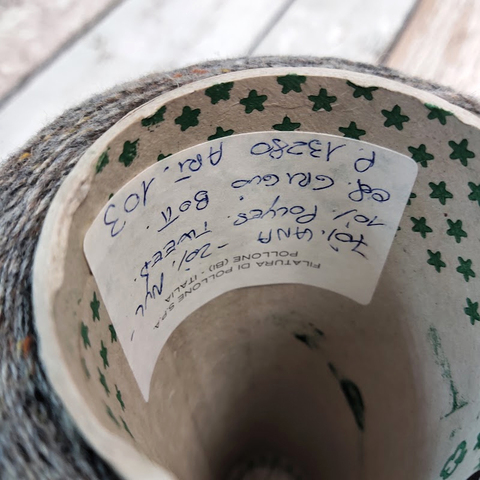 FILATURA DI POLLONE S.P.A
POLLONE (BI) - ITALIA
70% LANA - 20% NYL -
10% POLYES. TWEED.
GRIGIO BOTT.
P. 13280 ART. 103